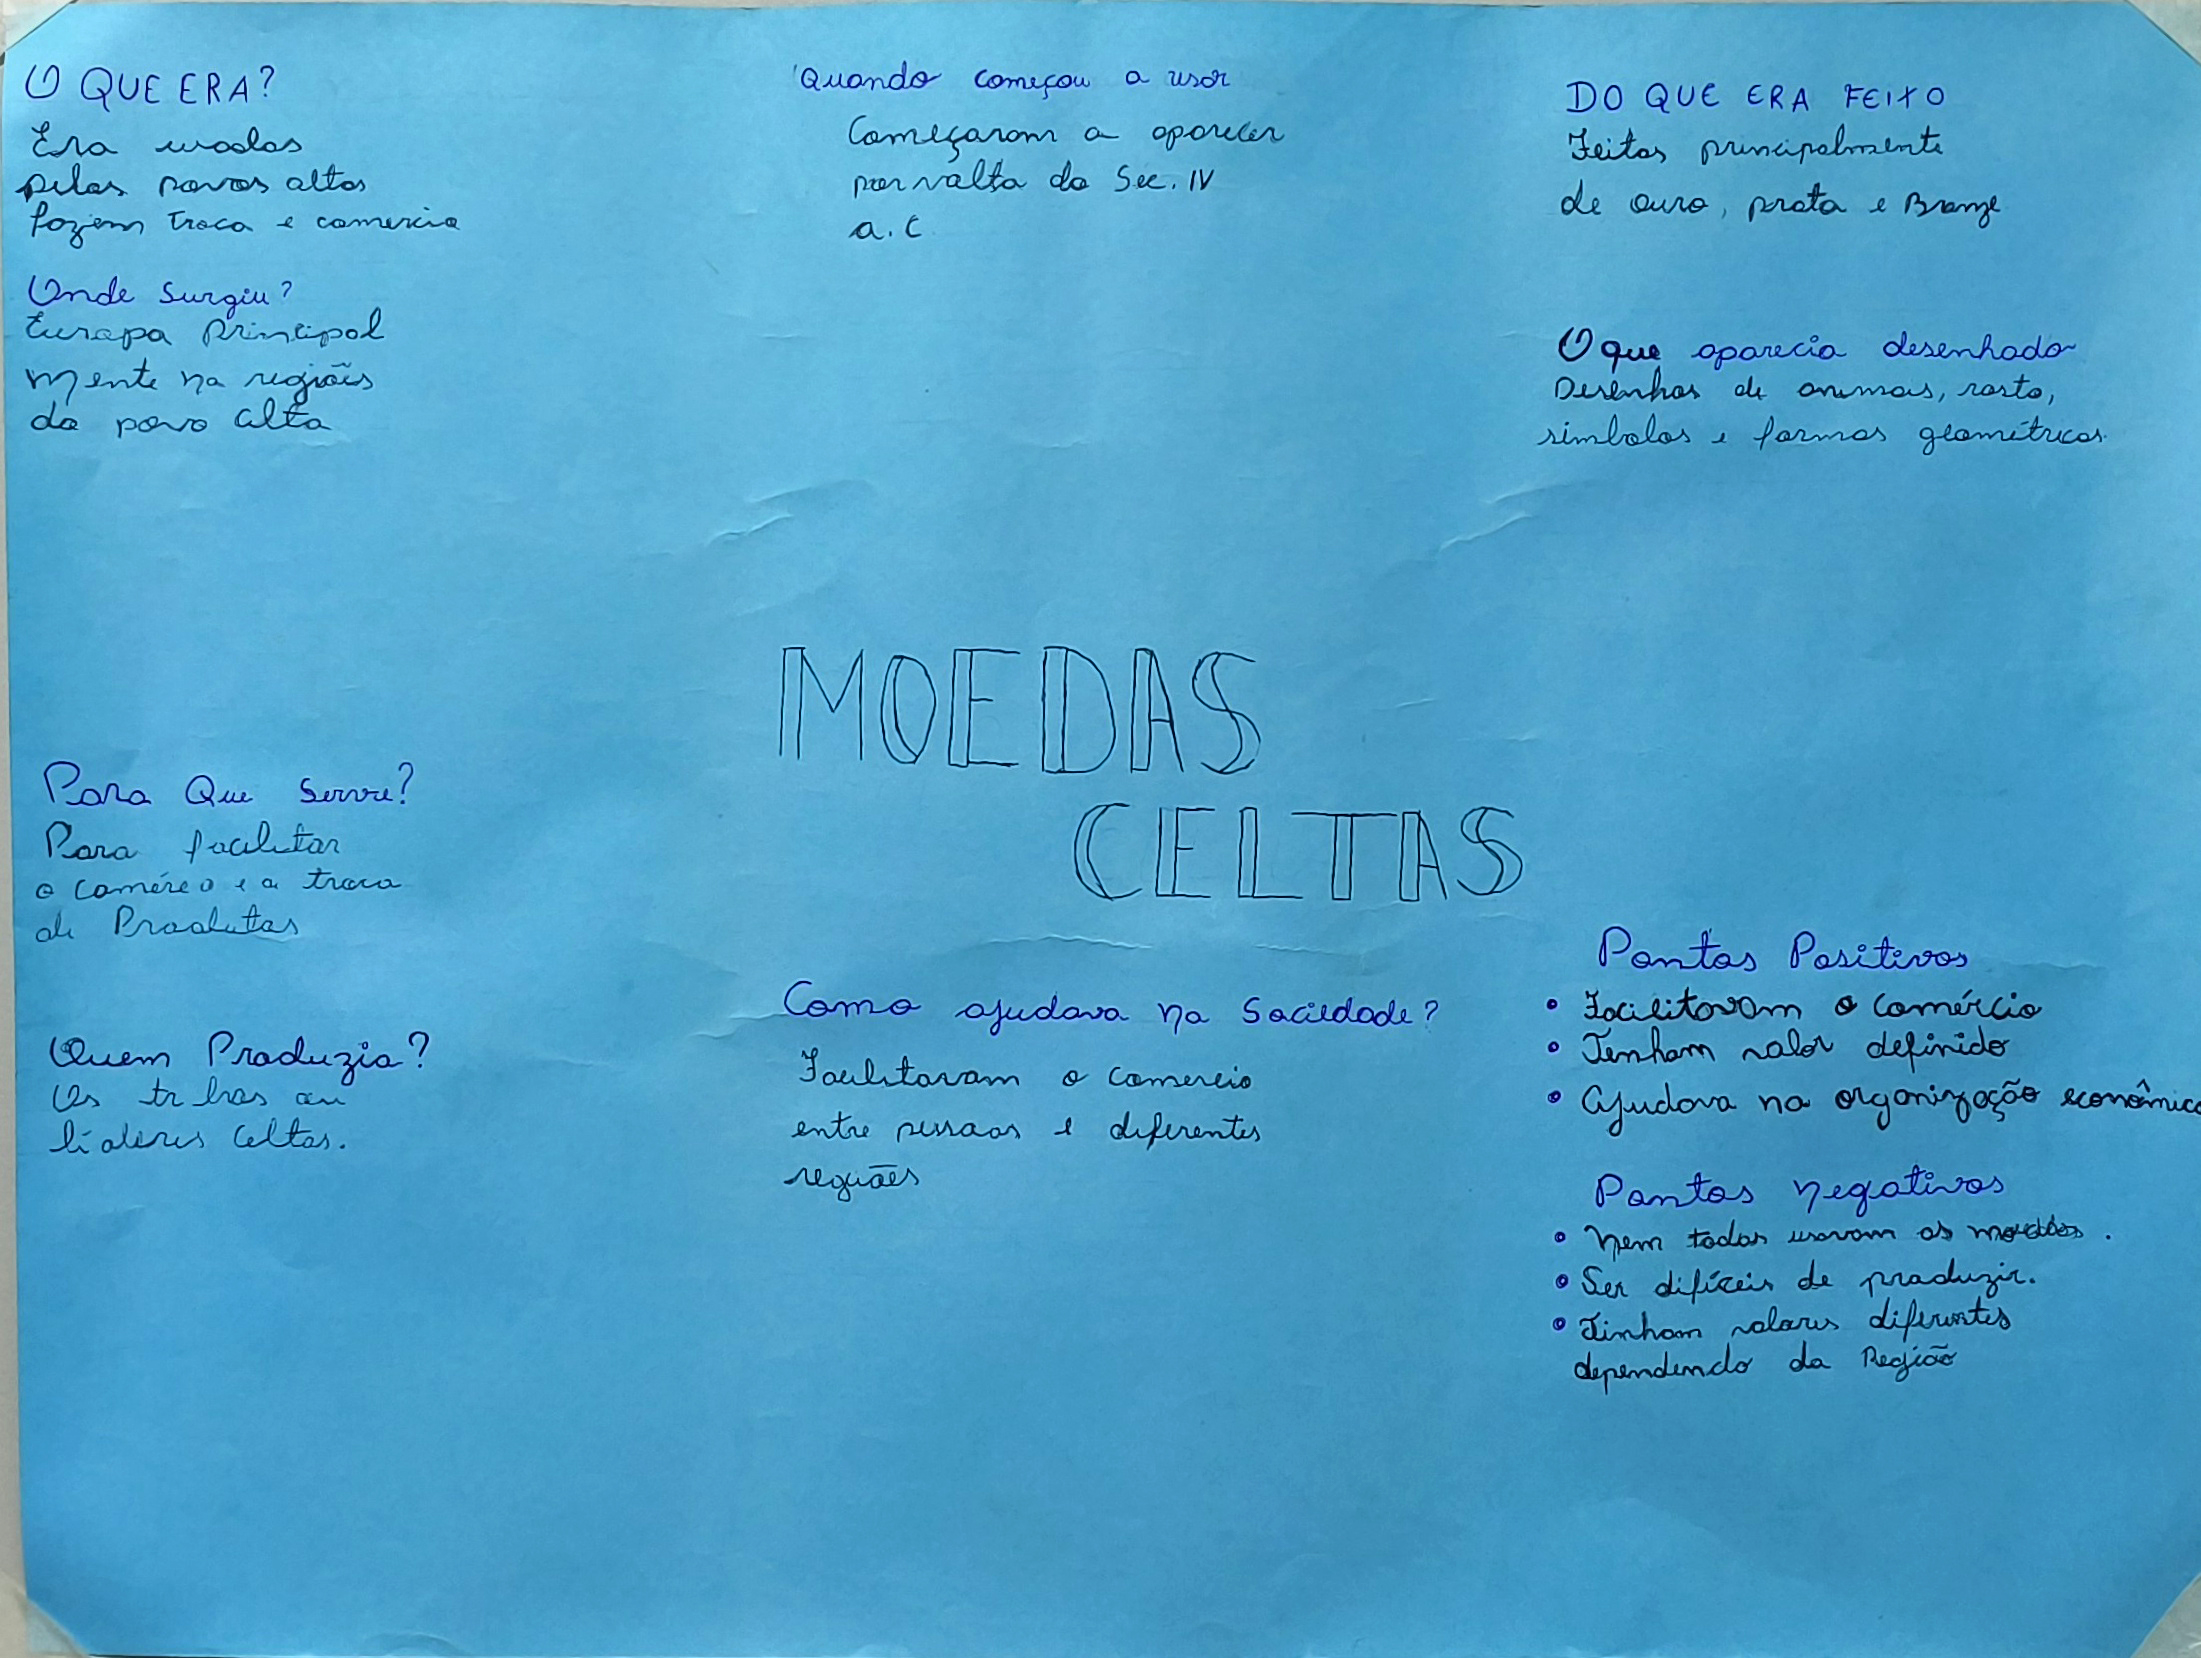 O QUE ERA?
Era usadas
pelos povos altos
fazem troca e comercio
Onde Surgiu?
Europa principal
mente na regiões
do povo alta
Quando começou a usar
Começaram a aparecer
por volta do Sec. IV
a.C
DO QUE ERA FEITO
Feitas principalmente
de ouro, prata e Bronze
O que aparecia desenhado
Desenhos de animais, rosto,
simbolos e formas geométricas.
MOEDAS
CELTAS
Para Que Serve?
Para facilitar
o comérco e a troca
de Produtos
Quem Produzia?
Os tribos ou
líderes Celtas.
Como ajudava na Sociedade?
Facilitavam o comercio
entre pessoas e diferentes
regiões
Pontos Positivos
• Facilitavam o comércio
• Tenham valor definido
• Ajudava na organização econômica
Pontos negativos
• Nem todos usavam as moedas.
• Ser difíceis de produzir.
• Tinham valores diferentes
dependendo da Região